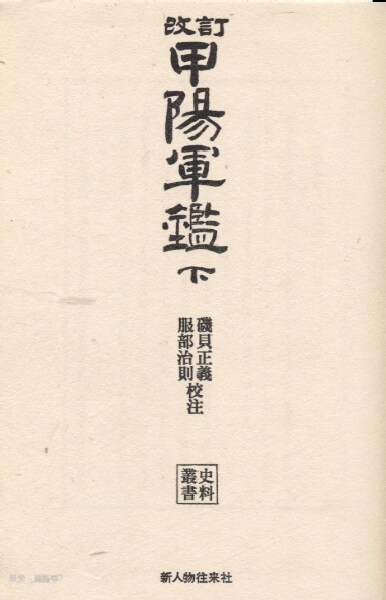 改訂
甲陽軍鑑
下
磯貝正義
服部治則 校注
史料
叢書
新人物往来社